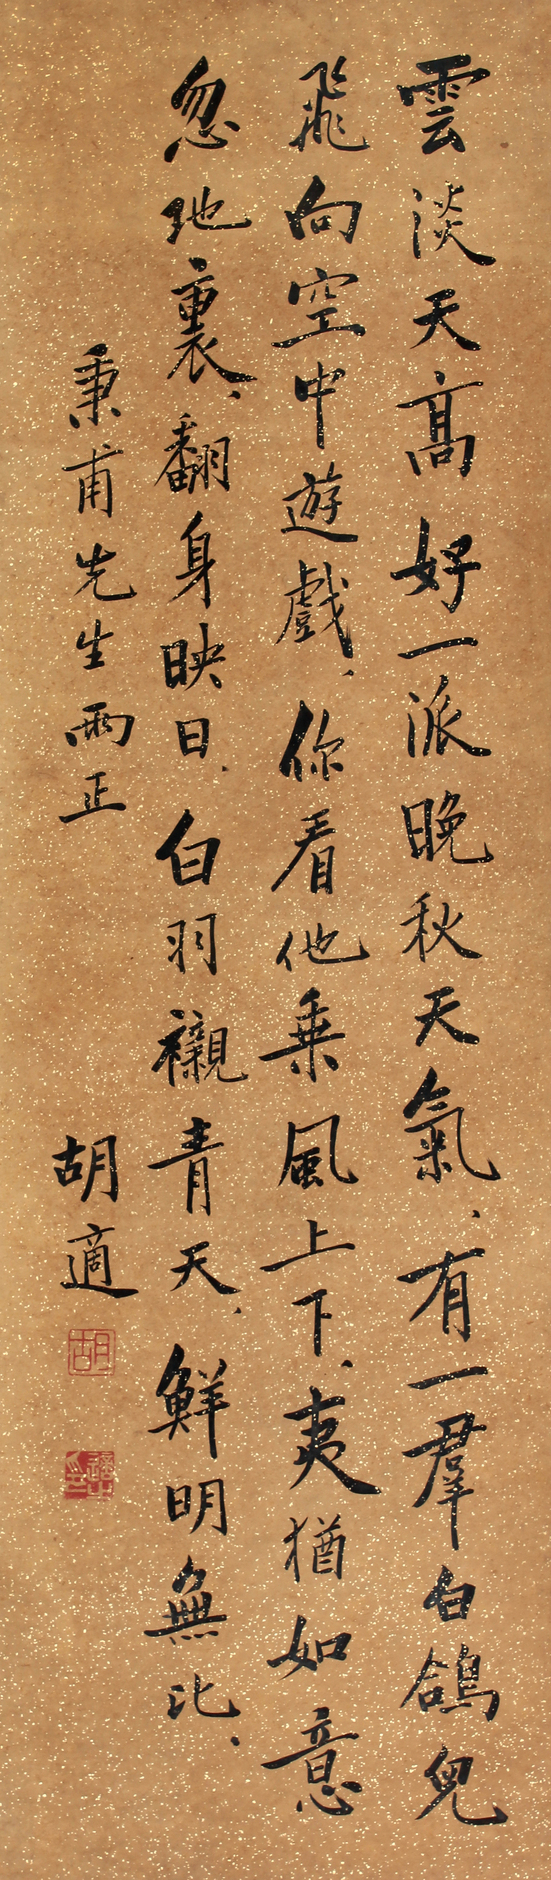 雲淡天高好一派晚秋天氣、有一羣白鴿兒
飛向空中遊戲、你看他乘風上下、夷猶如意
忽地裏、翻身映日、白羽襯青天、鮮明無比、
秉甫先生兩正
胡適
胡
適之